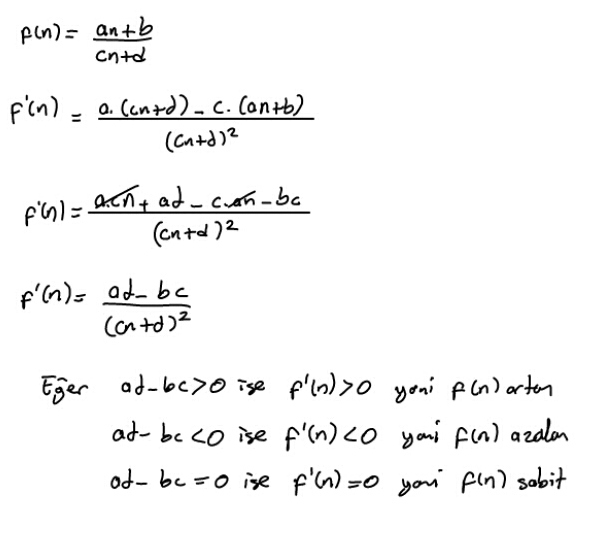 f(n) = an+b / cn+d
f'(n) = a.(cn+d) - c.(an+b) / (cn+d)²
f'(n) = a.cn + ad - c.an - bc / (cn+d)²
f'(n) = ad - bc / (cn+d)²
Eğer ad-bc>0 ise f'(n)>0 yani f(n) artan
ad-bc<0 ise f'(n)<0 yani f(n) azalan
ad-bc=0 ise f'(n)=0 yani f(n) sabit